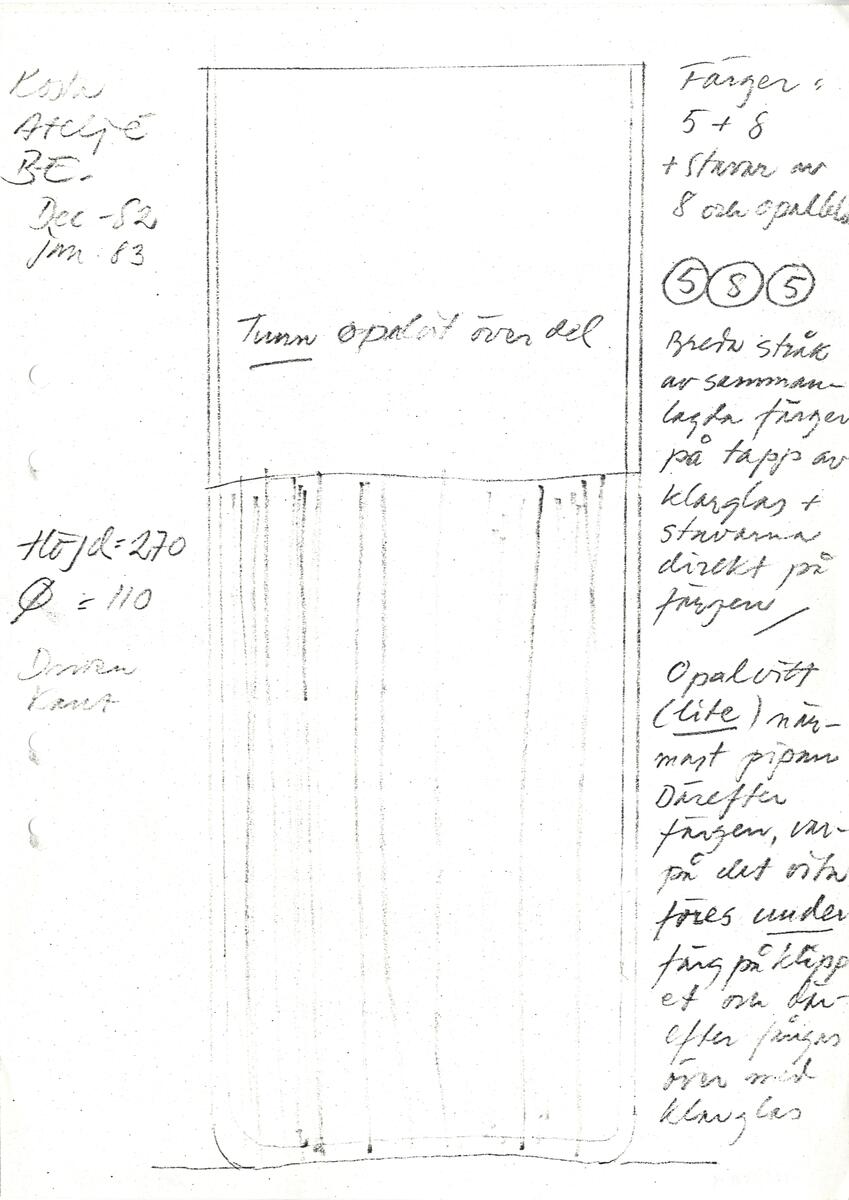 Kosta
Ateljé
BE.
Dec -82
jan 83
Höjd = 270
Ø = 110
Driven
Kant
Tunn opalvit över del
Färger:
5 + 8
+ stavar av
8 och opalblå
5 8 5
Breda stråk
av samman-
lagda färger
på tapp av
klarglas +
stavarna
direkt på
färgen
Opalvitt
(lite) när-
mast pipan
Därefter
färgen, var-
på det vita
föres under
färg på klipp
et och där-
efter fångas
över med
klarglas